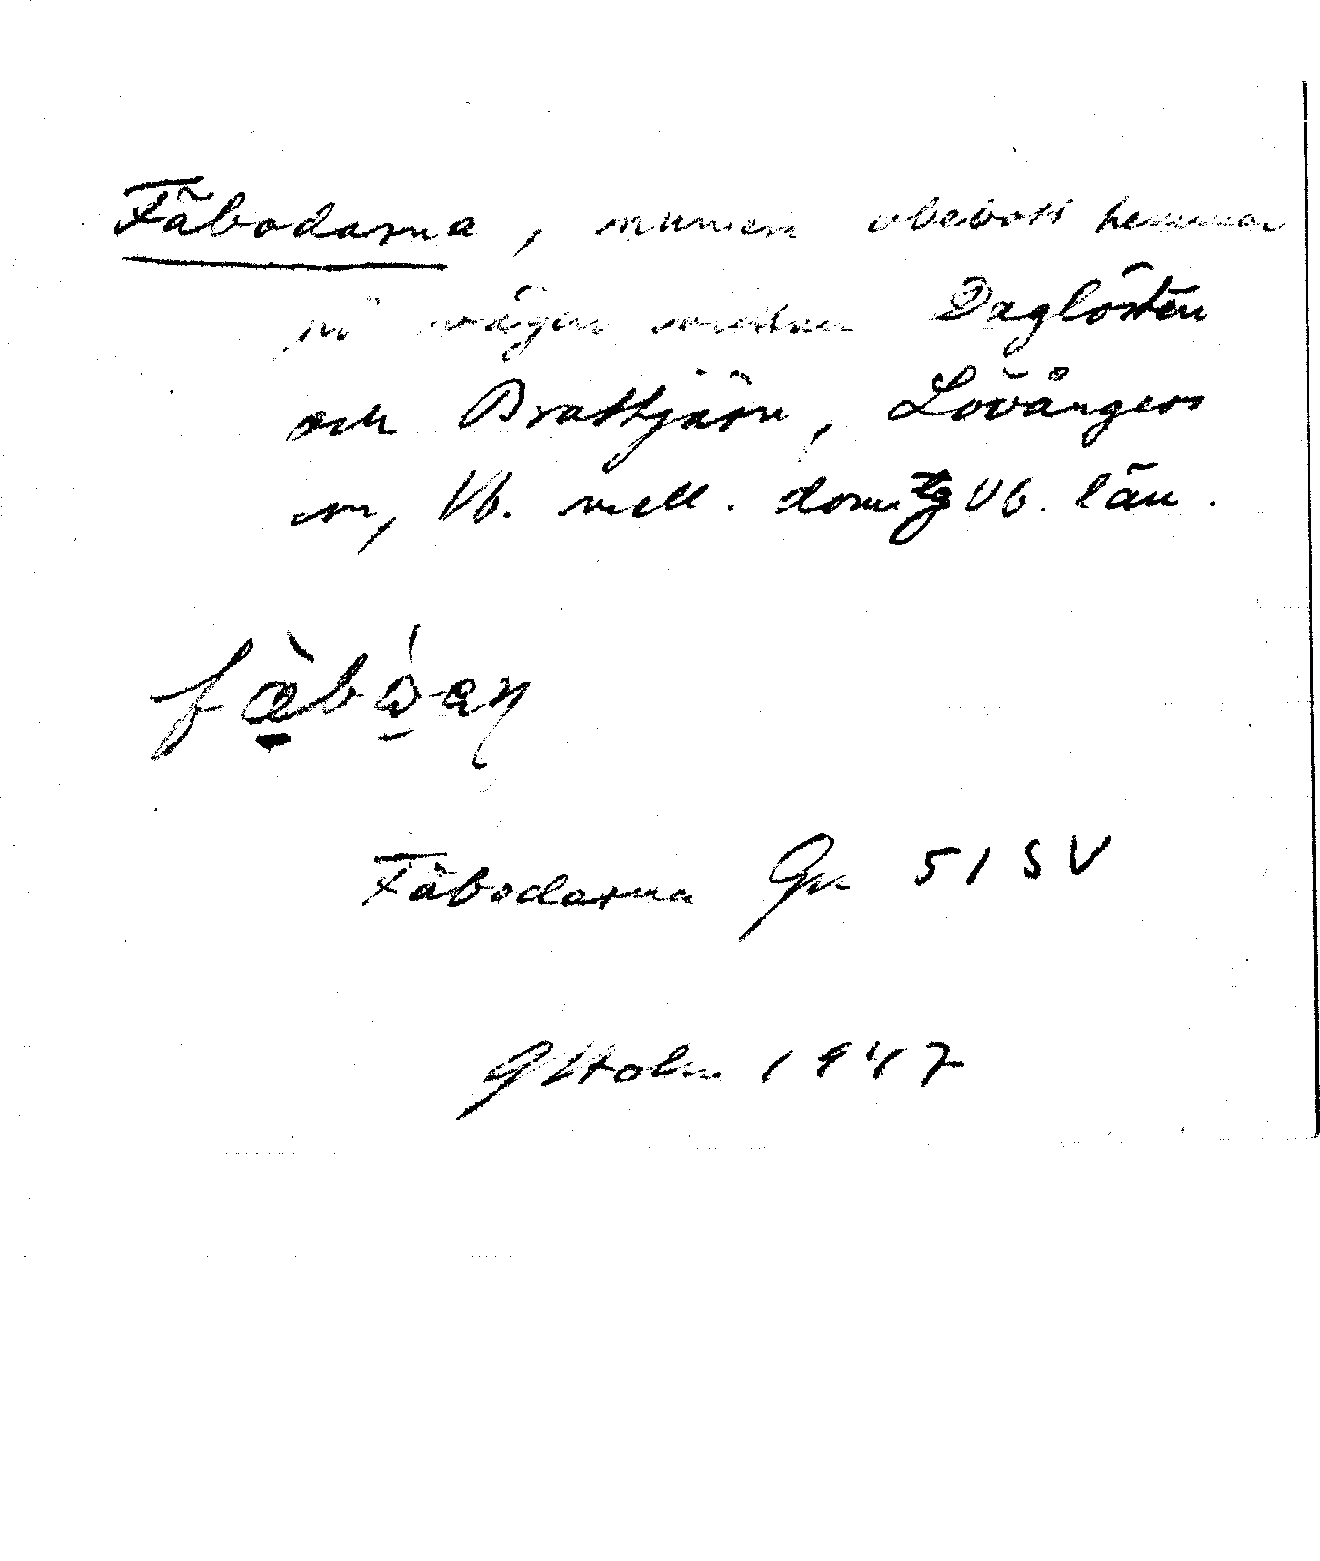 Fäbodarna, numera obebott hemman
på vägen mellan Daglösten
och Brattjärn, Lövångers
sn, Vb. mell. doms Vb. län.
Fäbodarna Gk 51 SV
G Holm 1947